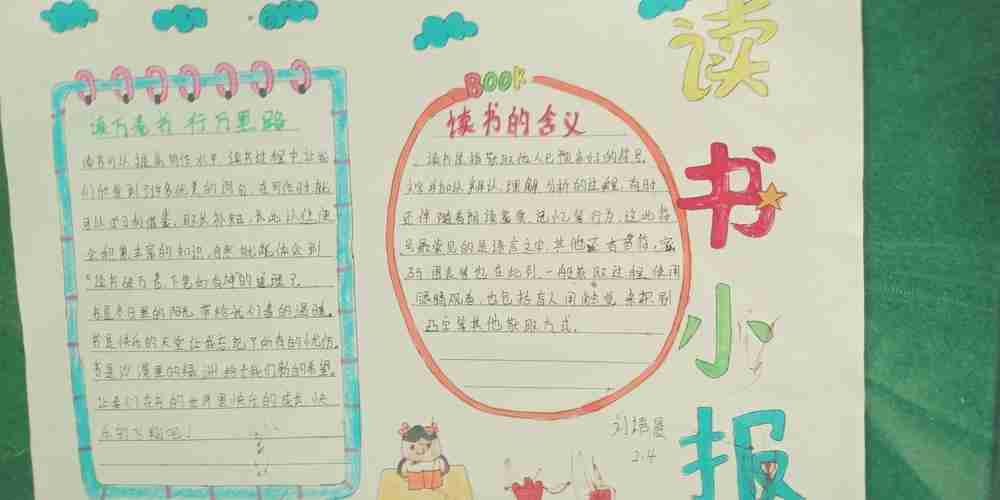 读万卷书 行万里路
读书可以提高写作水平,读书过程中让我
们体会到许多优美的词句,在写作时就
可以学习和借鉴,取长补短,长此以往,便
会积累丰富的知识,自然也就能体会到
"读书破万卷下笔如有神的道理了
书是冬日里的阳光,带给我们春的温暖。
书是快乐的天堂让我忘记了所有的忧伤。
书是沙漠里的绿洲给予我们新的希望。
让我们在书的世界里快乐的成长,快
乐的飞翔吧!
BOOK
读书的含义
读书是指获取他人已预备好的符号,
文字并加以辨认、理解、分析的过程,有时
还伴随着朗读鉴赏、记忆等行为,这些符
号最常见的是语言文字,其他还有音符,密
码图表等也在此列,一般获取过程,使用
眼睛观看,也包括盲人用触觉来识别
凸字等其他获取方式。
读书小报
2.4